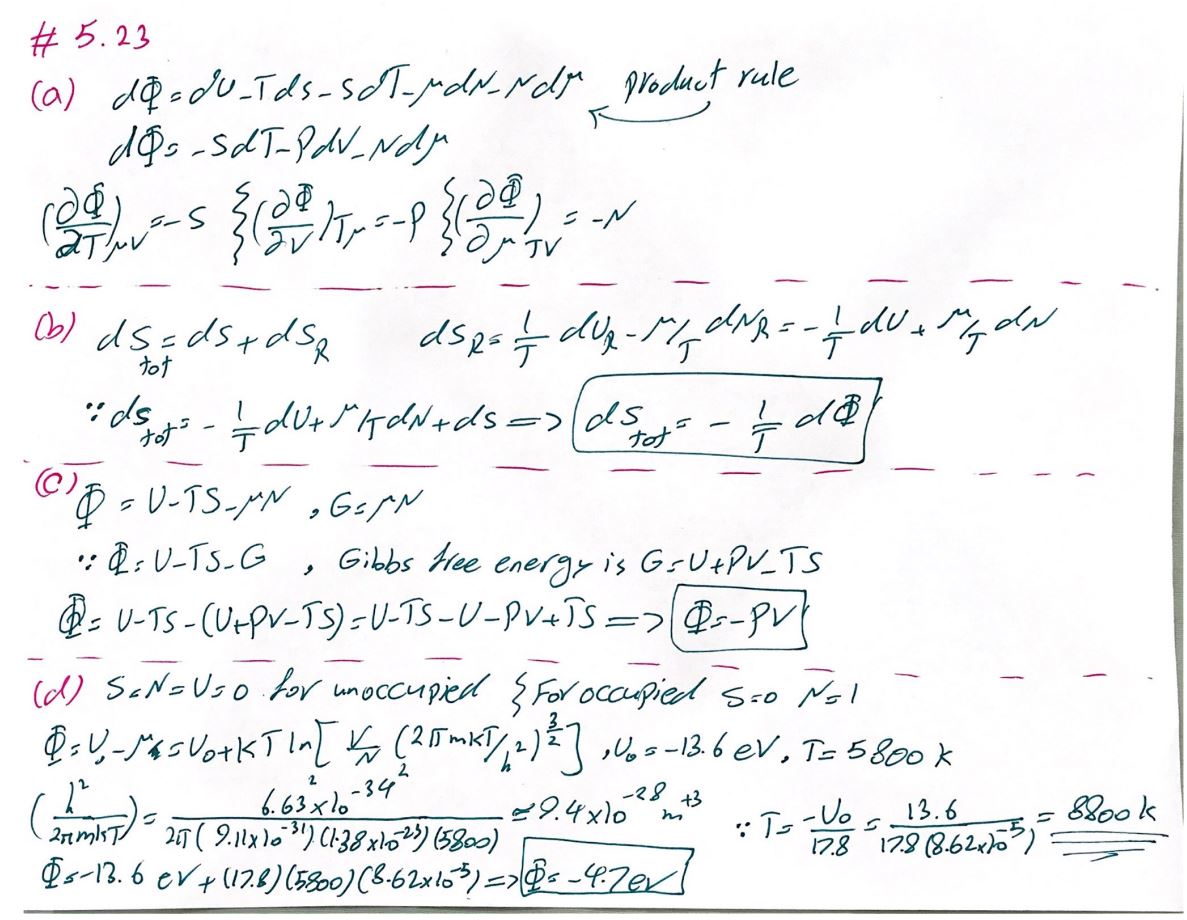 # 5.23
(a) dΦ = dU - Tds - SdT - μdN - Ndμ product rule
dΦ = -SdT - PdV - Ndμ
(∂Φ/∂T)μV = -S } (∂Φ/∂V)Tμ = -P } (∂Φ/∂μ)TV = -N
(b) dS_tot = ds + dS_R dS_R = 1/T dU_R - μ/T dN_R = -1/T dU + μ/T dN
∵ ds_tot = -1/T dU + μ/T dN + ds => dS_tot = -1/T dΦ
(c) Φ = U-TS-μN , G=μN
∵ Φ = U-TS-G , Gibbs free energy is G=U+PV-TS
Φ = U-TS-(U+PV-TS) = U-TS-U-PV+TS => Φ=-PV
(d) S=N=U=0 for unoccupied } For occupied S=0 N=1
Φ=U₀-μ=U₀+kT ln[V/N (2πmkT/h²)^3/2] , U₀ = -13.6 eV, T= 5800 k
(h²/2πmkT) = 6.63²x10^-34² / 2π(9.11x10^-31)(1.38x10^-23)(5800) ≃ 9.4x10^-28 m^+3 ∵ T = -U₀/17.8 = 13.6/17.8(8.62x10^-5) = 8800 k
Φ=-13.6 eV + (17.8)(5800)(8.62x10^-5) => Φ = -4.7ev